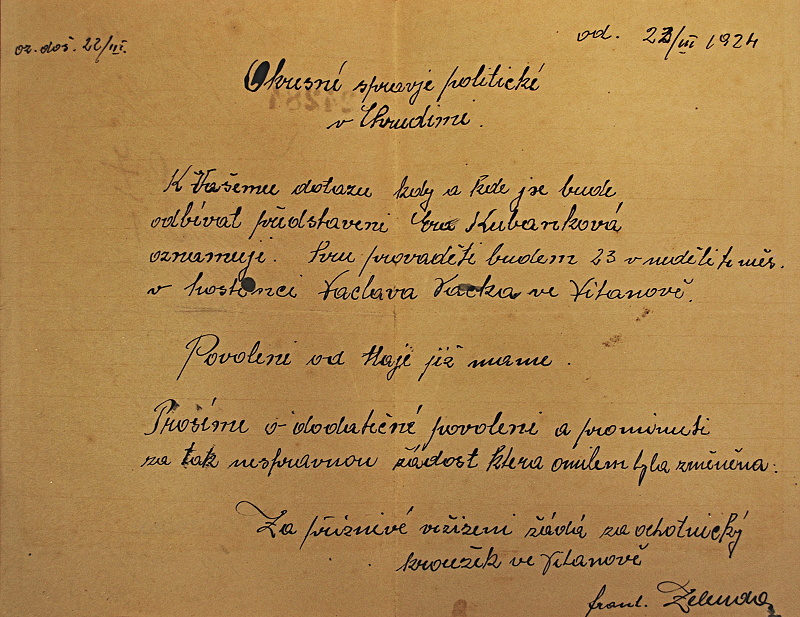 oz. doš. 22/III.
od. 22/III 1924
Okresné spravje politické
v Chrudimi.
K Vašemu dotazu kdy a kde jse bude
odbívat představeni Era Kubanková
oznamuji. Hru provaděti budem 23 v neděli t. měs.
v hostinci Vaclava Vacka ve Vitanově.
Povoleni od Haje již mame.
Prosíme o dodatičné povoleni a prominuti
za tak nespravnou žádost ktera omilem byla změněna.
Za přiznivé vižizeni žádá za ochotnický
kroužek ve Vitanově
frant. Zelenda